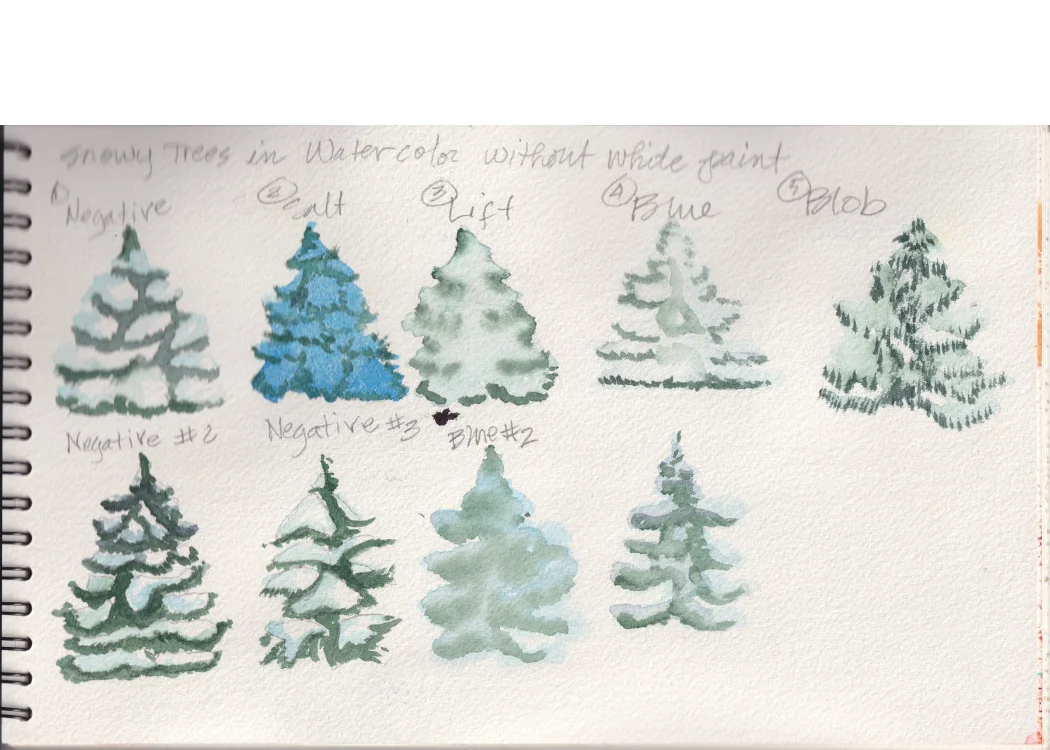 Snowy Trees in Watercolor without white paint
① Negative ② Salt ③ Lift ④ Blue ⑤ Blob
Negative #2 Negative #3 Blue #2